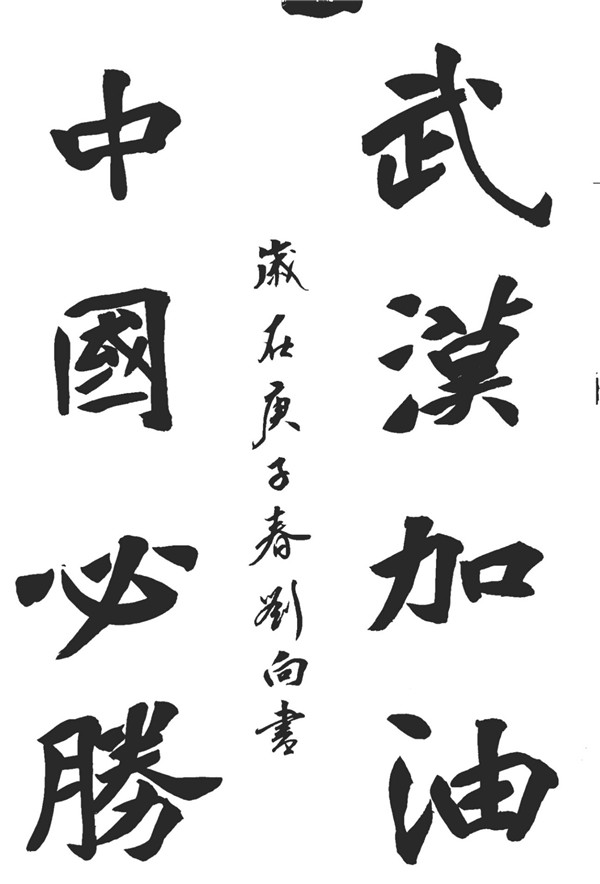 武漢加油
中國必勝
歲在庚子春劉向書